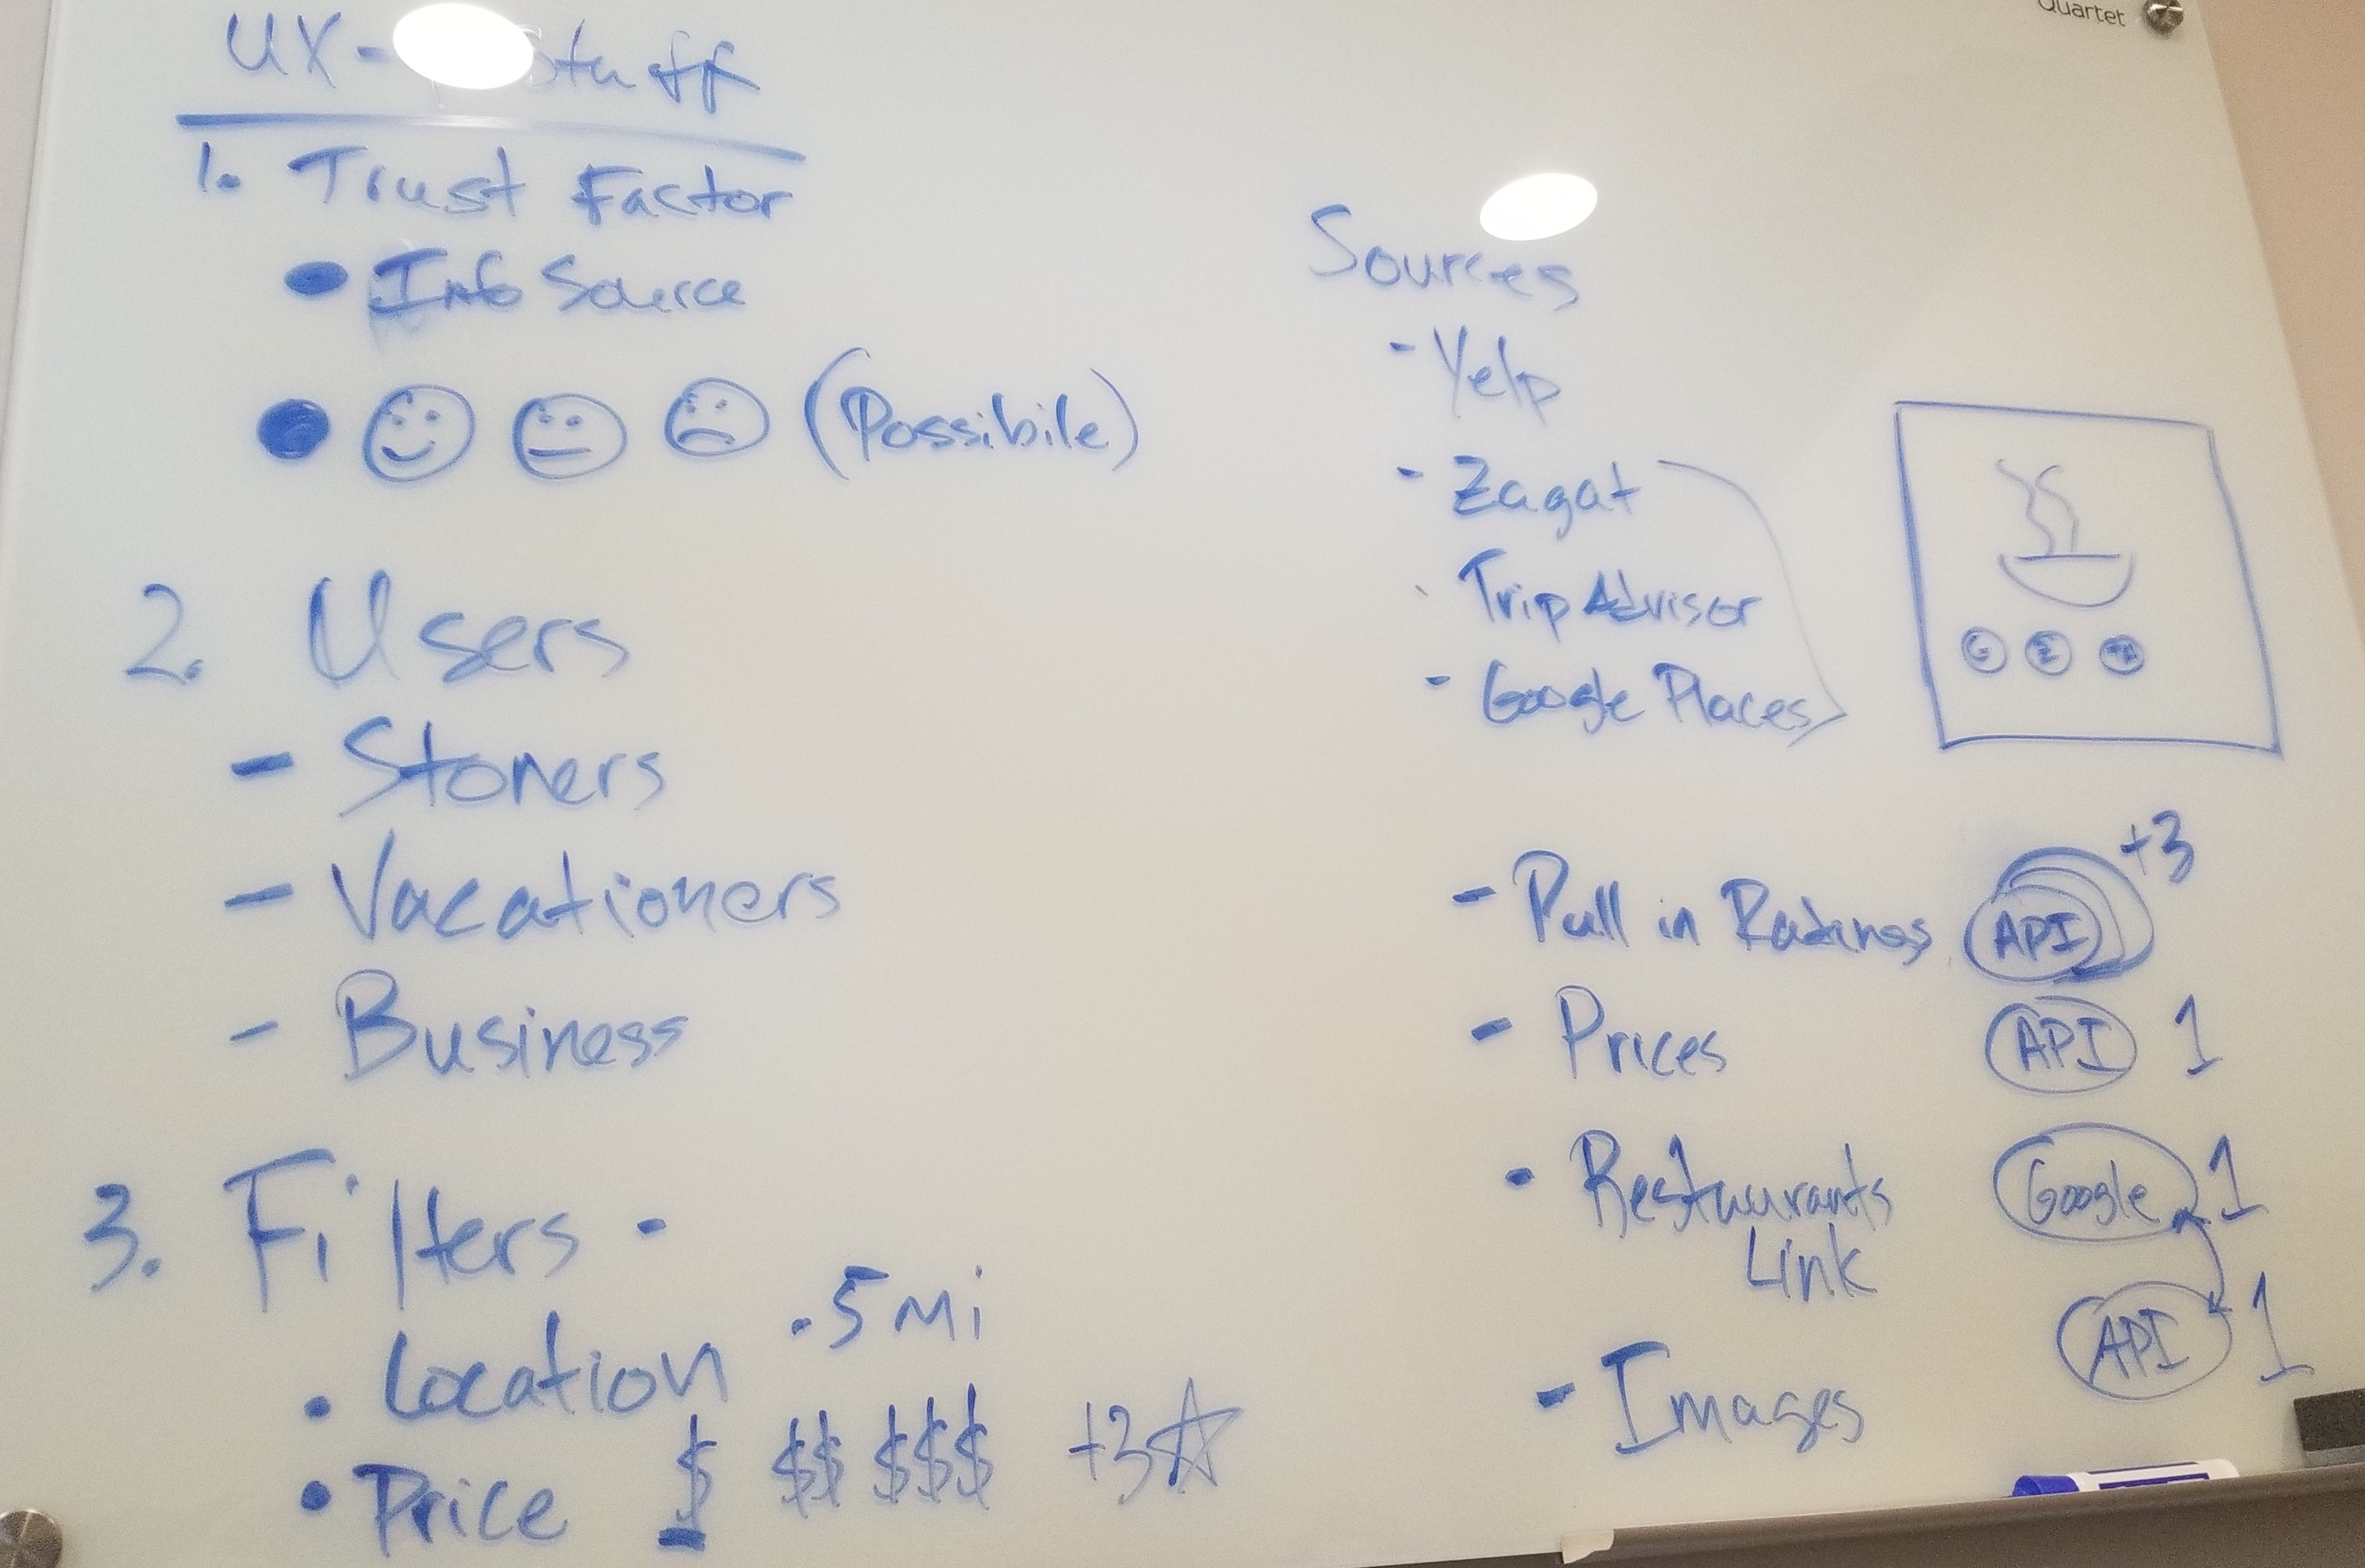 UX - Stuff
1. Trust Factor
Info Source
(Possibile)
2. Users
- Stoners
- Vacationers
- Business
3. Filters -
• Location .5 Mi
• Price $ $$ $$$ +3☆
Quartet
Sources
- Yelp
- Zagat
- Trip Advisor
- Google Places
G Z TA
- Pull in API +3
- Prices API 1
• Restaurants Google 1
Link
API 1
- Images